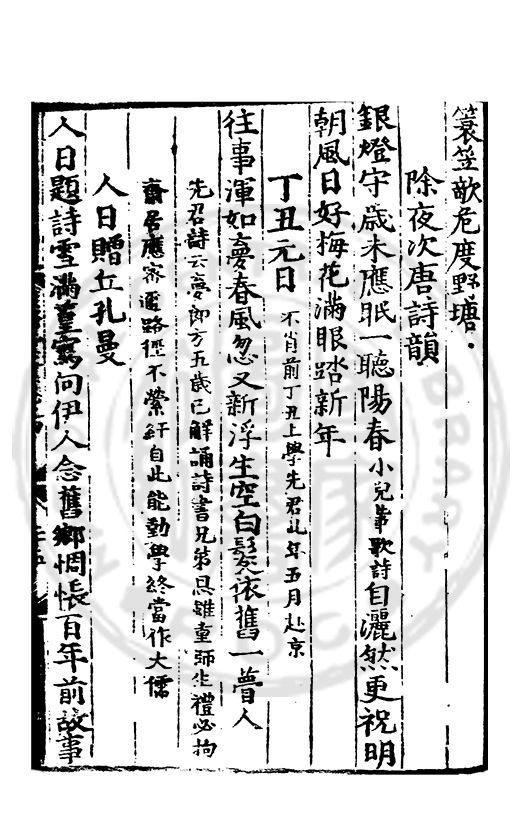 簑笠欹危度野塘
除夜次唐詩韻
銀燈守歲未應眠一聽陽春小兒軰歌詩自灑然更祝明
朝風日好梅花滿眼踏新年
丁丑元日不肖前丁丑上學先君此年五月赴京
往事渾如夢春風忽又新浮生空白髮依舊一瞢人
先君詩云夢郎方五歲已解誦詩書兄弟恩雖重師生禮必拘
齋居應密邇路徑不縈紆自此能勤學終當作大儒
人日贈丘孔曼
人日題詩雪滿何伊人念舊鄉惆悵百年前故事